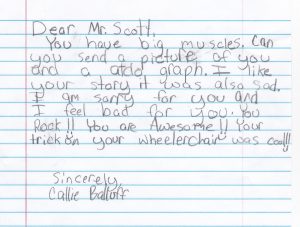 Dear Mr. Scott,
You have big muscles. Can
you send a picture of you
and a atdo graph. I like
your story it was also sad.
I am sorry for you and
I feel bad for you. You
Rock!! You are Awesome!! Your
trick on your wheelerchair was cool!!
Sincerely,
Callie